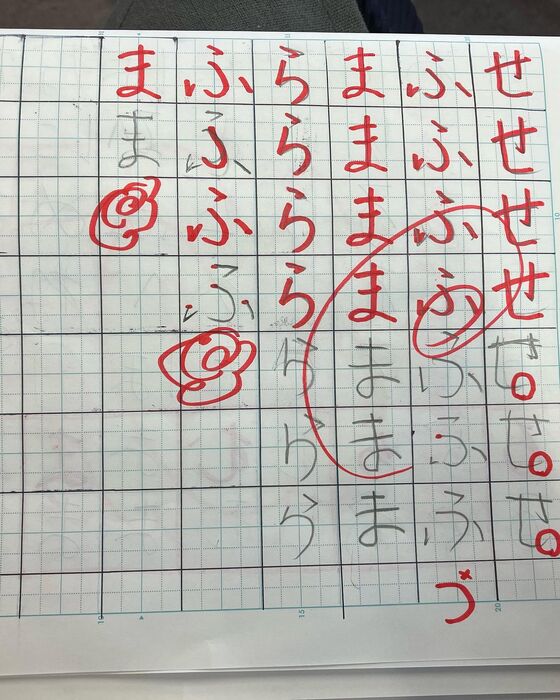 せせせせせせせ
ふふふふふふふ
ままままままま
ららららららら
ふふふふ
まま